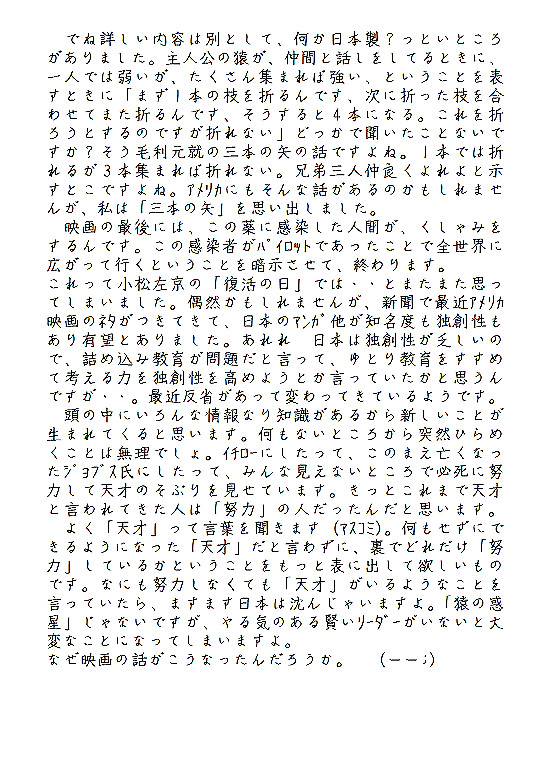 でね詳しい内容は別として、何か日本製？っといところ
がありました。主人公の猿が、仲間と話しをしてるときに、
一人では弱いが、たくさん集まれば強い、ということを表
すときに「まず１本の枝を折るんです、次に折った枝を合
わせてまた折るんです、そうすると４本になる。これを折
ろうとするのですが折れない」どっかで聞いたことないで
すか？そう毛利元就の三本の矢の話ですよね。１本では折
れるが３本集まれば折れない。兄弟三人仲良くよれよと示
すとこですよね。ｱﾒﾘｶにもそんな話があるのかもしれませ
んが、私は「三本の矢」を思い出しました。
　映画の最後には、この薬に感染した人間が、くしゃみを
するんです。この感染者がﾊﾟｲﾛｯﾄであったことで全世界に
広がって行くということを暗示させて、終わります。
これって小松左京の「復活の日」では・・とまたまた思っ
てしまいました。偶然かもしれませんが、新聞で最近ｱﾒﾘｶ
映画のﾈﾀがつきてきて、日本のｱﾝｶﾞ他が知名度も独創性も
あり有望とありました。あれれ　日本は独創性が乏しいの
で、詰め込み教育が問題だと言って、ゆとり教育をすすめ
て考える力を独創性を高めようとか言っていたかと思うん
ですが・・。最近反省があって変わってきているようです。
　頭の中にいろんな情報なり知識があるから新しいことが
生まれてくると思います。何もないところから突然ひらめ
くことは無理でしょ。ｲﾁﾛｰにしたって、このまえ亡くなっ
たｼﾞｮﾌﾞｽ氏にしたって、みんな見えないところで必死に努
力して天才のそぶりを見せています。きっとこれまで天才
と言われてきた人は「努力」の人だったんだと思います。
　よく「天才」って言葉を聞きます（ﾏｽｺﾐ）。何もせずにで
きるようになった「天才」だと言わずに、裏でどれだけ「努
力」しているかということをもっと表に出して欲しいもの
です。なにも努力しなくても「天才」がいるようなことを
言っていたら、ますます日本は沈んじゃいますよ。「猿の惑
星」じゃないですが、やる気のある賢いﾘｰﾀﾞｰがいないと大
変なことになってしまいますよ。
なぜ映画の話がこうなったんだろうか。　　（ーー；）